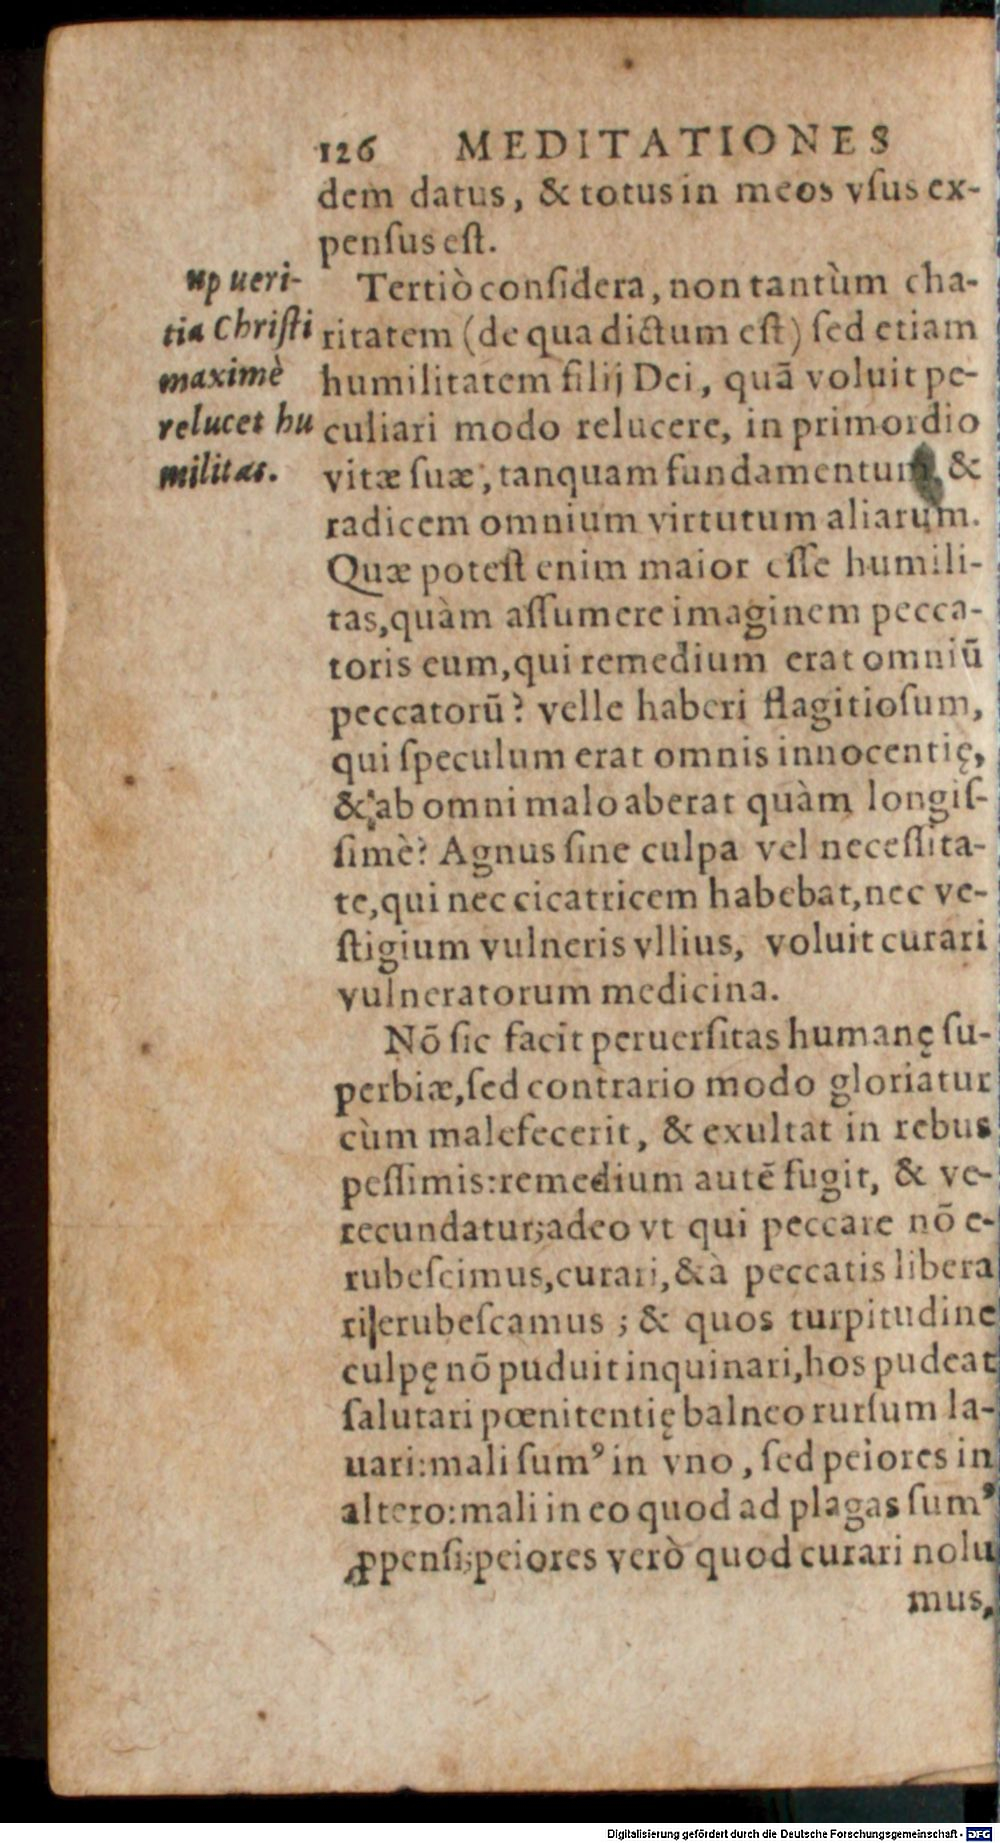 126 MEDITATIONES
dem datus, & totus in meos vſus ex-
penſus eſt.
up ueri-
tia Chriſti
maximè
relucet hu
militas.
Tertiò conſidera, non tantùm cha-
ritatem (de qua dictum eſt) ſed etiam
humilitatem filij Dei, quā voluit pe-
culiari modo relucere, in primordio
vitæ ſuæ, tanquam fundamentum, &
radicem omnium virtutum aliarum.
Quæ poteſt enim maior eſſe humili-
tas,quàm aſſumere imaginem pecca-
toris eum,qui remedium erat omniū
peccatorū? velle haberi flagitioſum,
qui ſpeculum erat omnis innocentię,
& ab omni malo aberat quàm longiſ-
ſimè? Agnus ſine culpa vel neceſſita-
te,qui nec cicatricem habebat,nec ve-
ſtigium vulneris vllius, voluit curari
vulneratorum medicina.
Nō ſic facit peruerſitas humanę ſu-
perbiæ,ſed contrario modo gloriatur
cùm malefecerit, & exultat in rebus
peſſimis:remedium autē fugit, & ve-
recundatur;adeo vt qui peccare nō e-
rubeſcimus,curari,& à peccatis libera
ri erubeſcamus ; & quos turpitudine
culpę nō puduit inquinari,hos pudeat
ſalutari pœnitentię balneo rurſum la-
uari:mali ſumꝰ in vno, ſed peiores in
altero:mali in eo quod ad plagas ſumꝰ
ꝓpenſi;peiores verò quod curari nolu
mus,
Digitalisierung gefördert durch die Deutsche Forschungsgemeinschaft - DFG